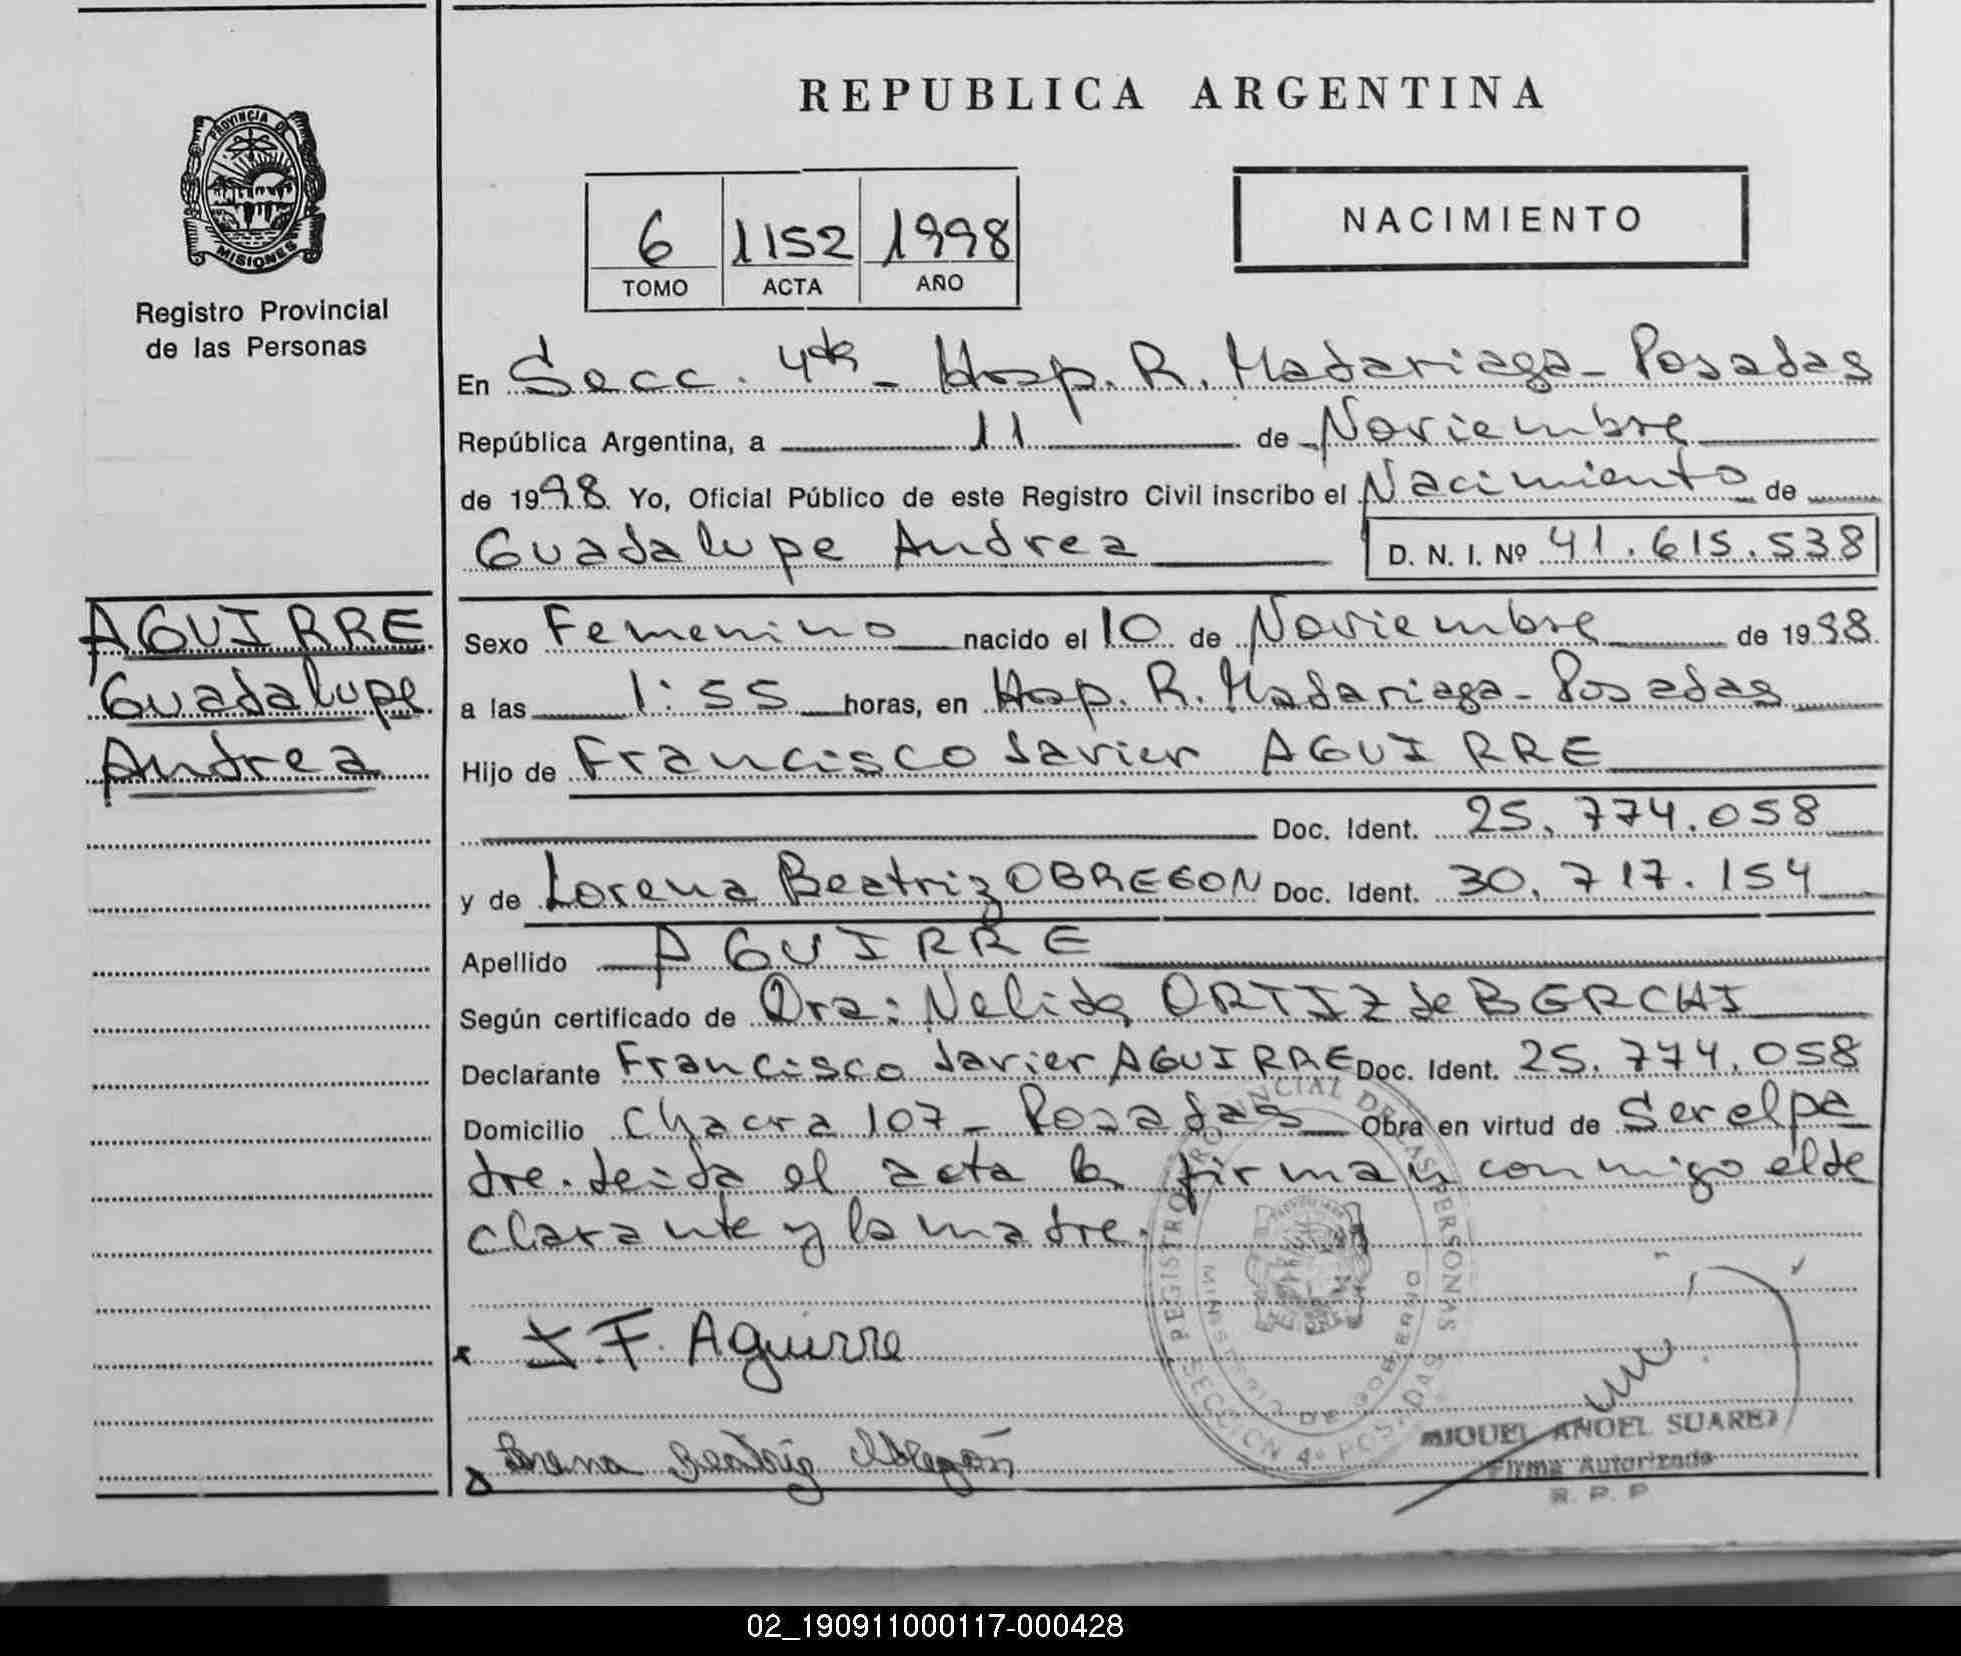 REPUBLICA ARGENTINA
PROVINCIA DE
MISIONES
Registro Provincial
de las Personas
6 1152 1998
TOMO ACTA AÑO
NACIMIENTO
En Secc. 4ta - Hosp. R. Madariaga - Posadas
República Argentina, a 11 de Noviembre
de 1998 Yo, Oficial Público de este Registro Civil inscribo el Nacimiento de
Guadalupe Andrea D. N. I. Nº 41.615.538
AGUIRRE
Guadalupe
Andrea
Sexo Femenino nacido el 10 de Noviembre de 1998
a las 1:55 horas, en Hosp. R. Madariaga - Posadas
Hijo de Francisco Javier AGUIRRE
Doc. Ident. 25.774.058
y de Lorena Beatriz OBREGON Doc. Ident. 30.717.154
Apellido AGUIRRE
Según certificado de Dra: Nelida ORTIZ de BERCHI
Declarante Francisco Javier AGUIRRE Doc. Ident. 25.774.058
Domicilio Chacra 107 - Posadas Obra en virtud de Ser el pa
dre. Leida el acta la firman conmigo el de
clarante y la madre.
REGISTRO PROVINCIAL DE LAS PERSONAS
MINISTERIO DE GOBIERNO
SECCION 4ª POSADAS
J.F. Aguirre
Lorena Beatriz Obregón
MIGUEL ANGEL SUAREZ
Firma Autorizada
R. P. P
02_190911000117-000428